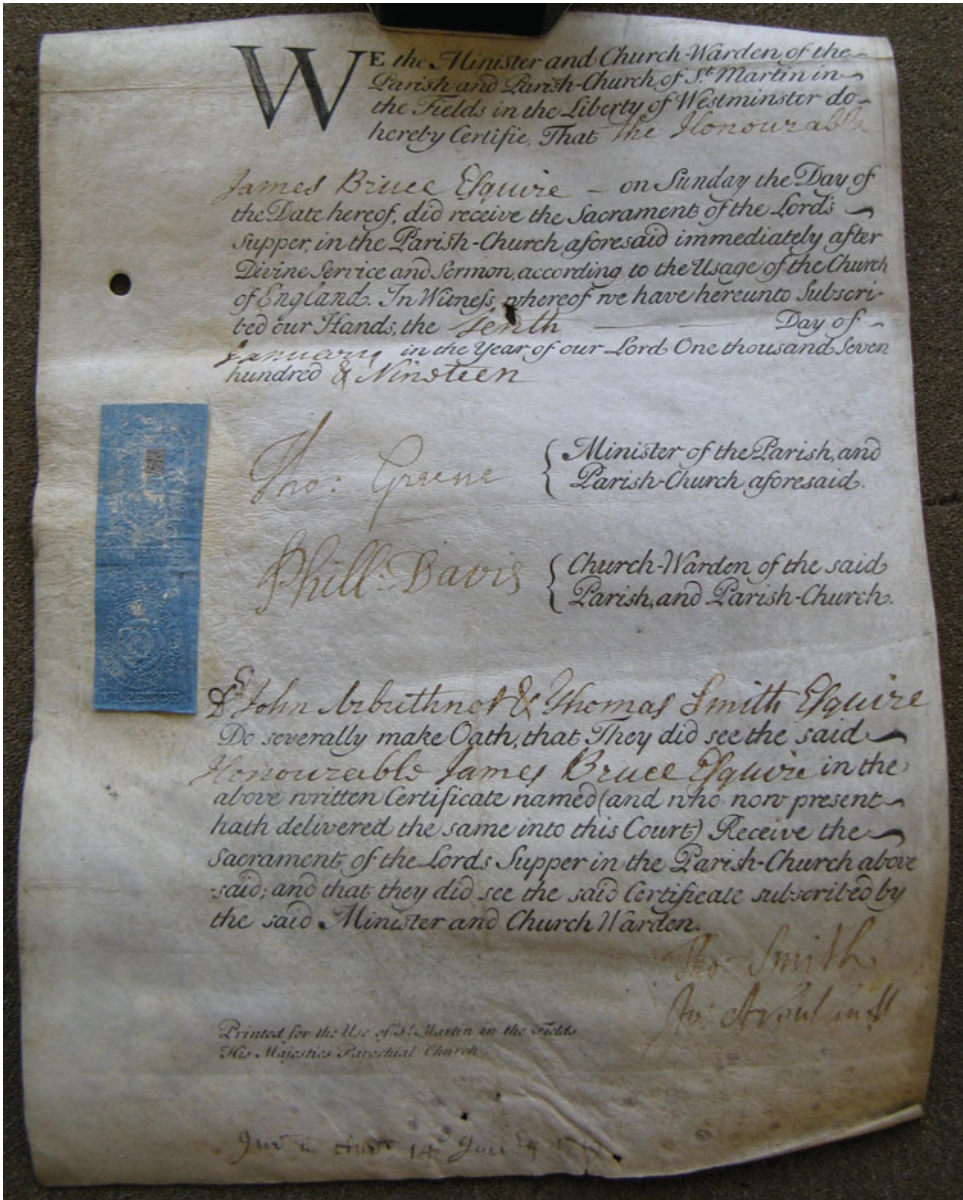 WE the Minister and Church-Warden of the
Parish and Parish-Church of St. Martin in
the Fields in the Liberty of Westminster do
hereby Certifie, That the Honourable
James Bruce Esquire — on Sunday the Day of
the Date hereof, did receive the Sacrament of the Lord's
Supper, in the Parish-Church aforesaid immediately after
Divine Service and Sermon, according to the Usage of the Church
of England. In Witness whereof we have hereunto Subscri-
bed our Hands, the Tenth — Day of
January in the Year of our Lord One thousand Seven
hundred & Nineteen
Tho: Greene
Minister of the Parish, and
Parish-Church aforesaid.
Phill: Davis
Church-Warden of the said
Parish, and Parish-Church.
Dr John Arbuthnot & Thomas Smith Esquire
Do severally make Oath, that They did see the said
Honourable James Bruce Esquire in the
above written Certificate named (and who now present
hath delivered the same into this Court) Receive the
Sacrament of the Lords Supper in the Parish-Church above
said; and that they did see the said Certificate subscribed by
the said Minister and Church Warden.
Tho: Smith
Jo: Arbuthnott
Printed for the Use of St. Martin in the Fields
His Majesties Parochial Church
14